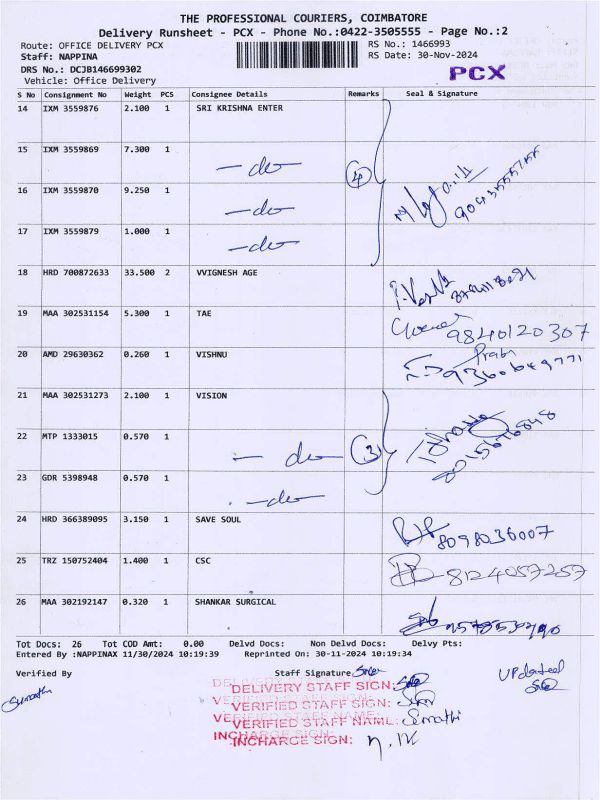 THE PROFESSIONAL COURIERS, COIMBATORE
Delivery Runsheet - PCX - Phone No.:0422-3505555 - Page No.:2
Route: OFFICE DELIVERY PCX RS No.: 1466993
Staff: NAPPINA RS Date: 30-Nov-2024
DRS No.: DCJB146699302
Vehicle: Office Delivery PCX
S No Consignment No Weight PCS Consignee Details Remarks Seal & Signature
14 IXM 3559876 2.100 1 SRI KRISHNA ENTER
15 IXM 3559869 7.300 1 -do-
4
16 IXM 3559870 9.250 1 -do-
17 IXM 3559879 1.000 1 -do-
18 HRD 700872633 33.500 2 VVIGNESH AGE
19 MAA 302531154 5.300 1 TAE 9840120307
20 AMD 29630362 0.260 1 VISHNU
21 MAA 302531273 2.100 1 VISION
22 MTP 1333015 0.570 1 - do 3
23 GDR 5398948 0.570 1 -do-
24 HRD 366389095 3.150 1 SAVE SOUL 8098036007
25 TRZ 150752404 1.400 1 CSC 8124057257
26 MAA 302192147 0.320 1 SHANKAR SURGICAL
Tot Docs: 26 Tot COD Amt: 0.00 Delvd Docs: Non Delvd Docs: Delvy Pts:
Entered By :NAPPINAX 11/30/2024 10:19:39 Reprinted On: 30-11-2024 10:19:34
Verified By Staff Signature UPdated
Sumathi
DELIVERY STAFF SIGN:
VERIFIED STAFF SIGN:
VERIFIED STAFF NAME: Sumathi
INCHARGE SIGN: